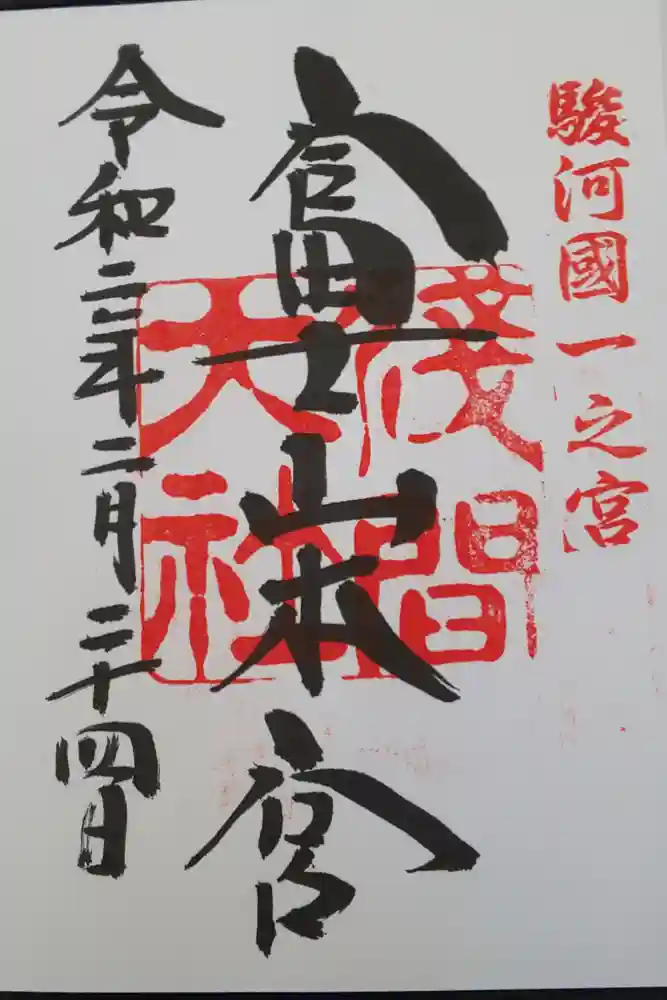 駿河國一之宮
富士山本宮
淺間
大社
令和二年二月二十四日